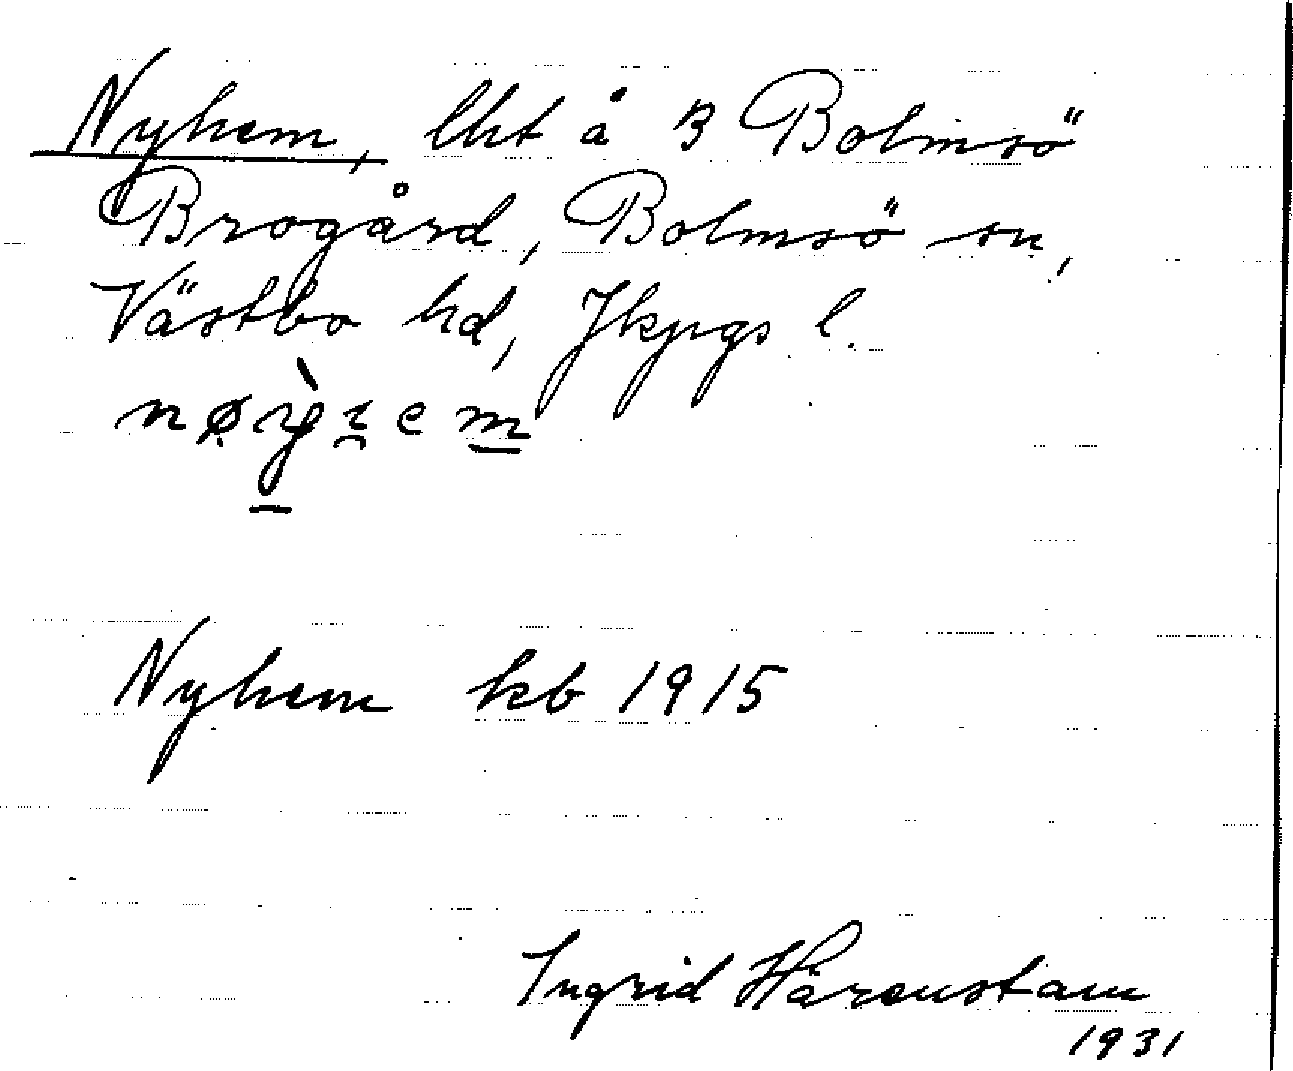 Nyhem, lht å 3 Bolmsö
Brogård, Bolmsö sn,
Västbo hd, Jkpgs l.
Nyhem kb 1915
Ingrid Härenstam
1931